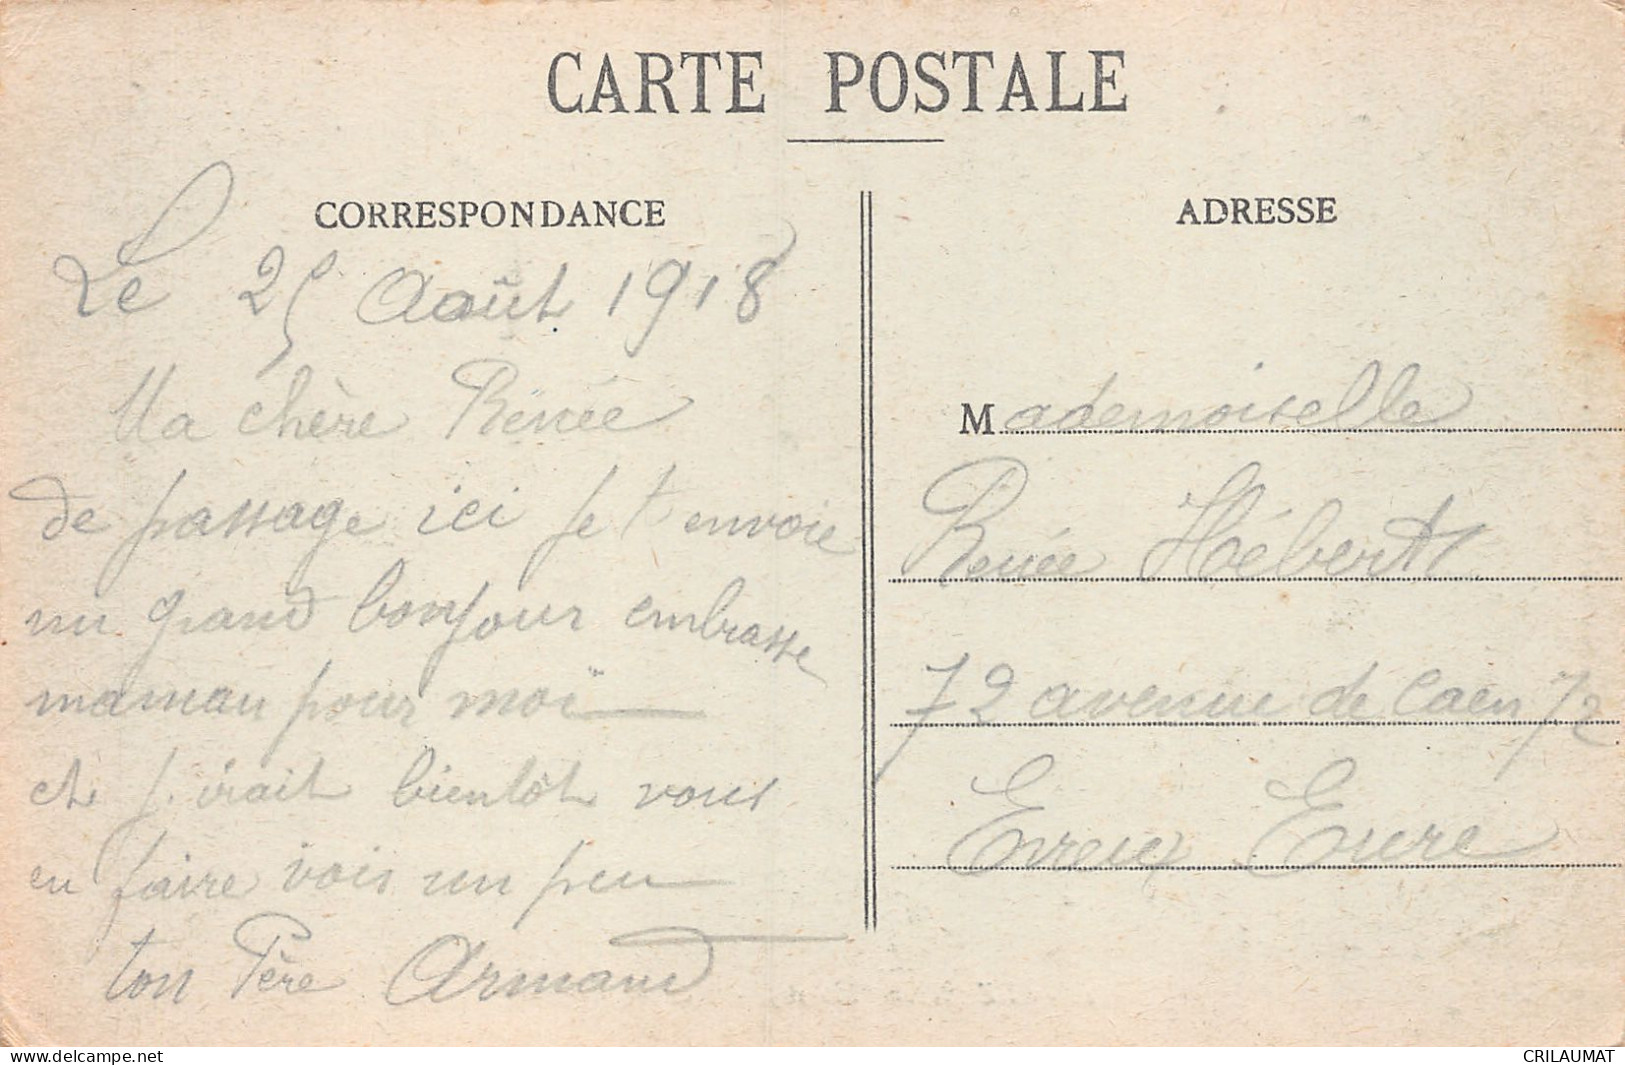 CARTE POSTALE
CORRESPONDANCE
Le 25 Août 1918
Ma chère Rénée
de passage ici je t envoie
un grand bonjour embrasse
maman pour moi
et j. irait bientôt vous
en faire vois un peu
ton Père Armand
ADRESSE
Mademoiselle
Renée Hébert
72 avenue de Caen 72
Evreux Eure
www.delcampe.net
CRILAUMAT